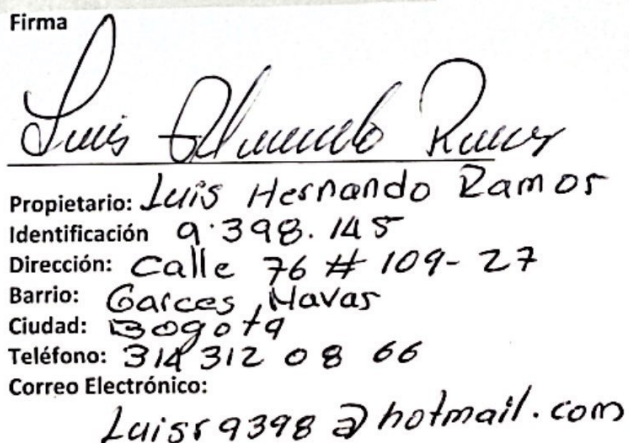 Firma
Luis Hernando Ramos
Propietario: Luis Hernando Ramos
Identificación 9.398.145
Dirección: Calle 76 # 109-27
Barrio: Garces Navas
Ciudad: Bogota
Teléfono: 314 312 08 66
Correo Electrónico:
Luisr9398@hotmail.com